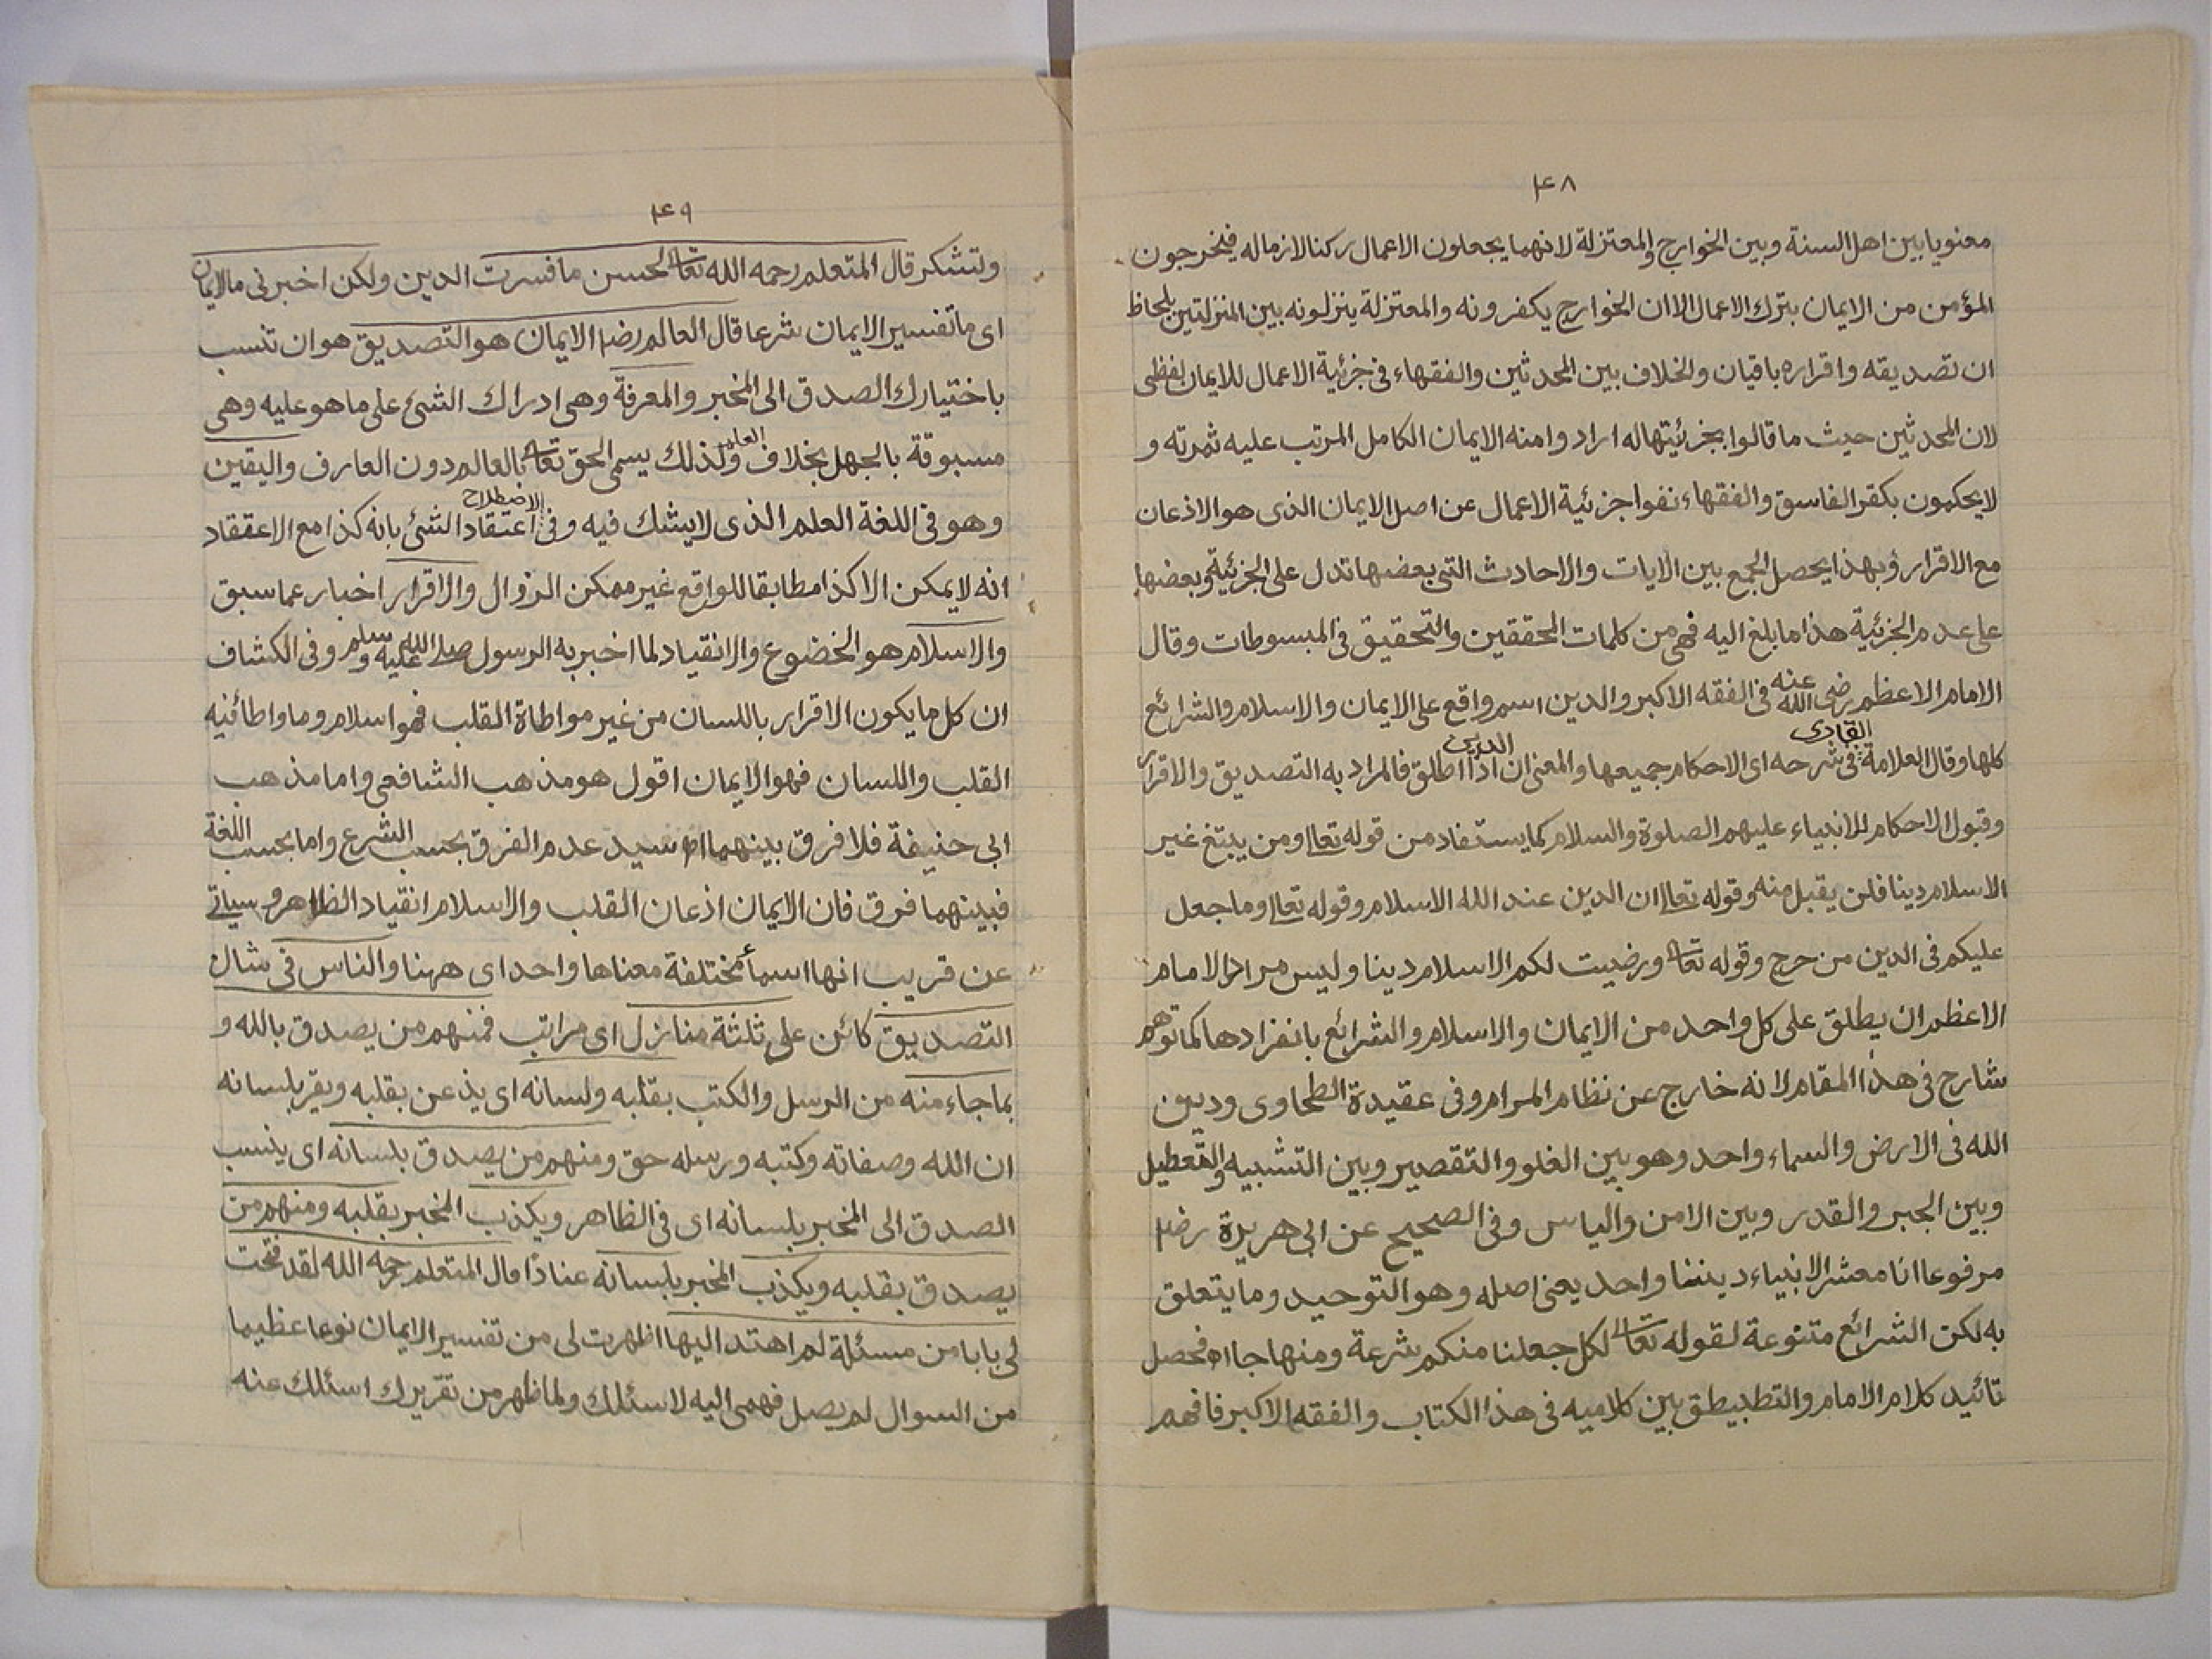 ٤٨
معنويا بين اهل السنة وبين الخوارج والمعتزلة لانهما يجعلون الاعمال ركنا لازما له فيخرجون
المؤمن من الايمان بترك الاعمال الا ان الخوارج يكفرونه والمعتزلة ينزلونه بين المنزلتين بلحاظ
ان تصديقه واقراره باقيان والخلاف بين المحدثين والفقهاء فى جزئية الاعمال للايمان لفظى
لان المحدثين حيث ما قالوا بجزئيتها له ارادوا منه الايمان الكامل المرتب عليه ثمرته و
لا يحكمون بكفر الفاسق والفقهاء نفوا جزئية الاعمال عن اصل الايمان الذى هو الاذعان
مع الاقرار وبهذا يحصل الجمع بين الايات والاحادث التى بعضها تدل على الجزئية وبعضها
على عدم الجزئية هذا ما بلغ اليه فهمى من كلمات المحققين والتحقيق فى المبسوطات وقال
الامام الاعظم رضى الله عنه فى الفقه الاكبر والدين اسم واقع على الايمان والاسلام والشرائع
كلها وقال العلامة القارى فى شرحه اى الاحكام جميعها والمعنى ان الدين اذا اطلق فالمراد به التصديق والاقرار
وقبول الاحكام للانبياء عليهم الصلوة والسلام كما يستفاد من قوله تعالى ومن يبتغ غير
الاسلام دينا فلن يقبل منه وقوله تعالى ان الدين عند الله الاسلام وقوله تعالى وما جعل
عليكم فى الدين من حرج وقوله تعالى ورضيت لكم الاسلام دينا وليس مراد الامام
الاعظم ان يطلق على كل واحد من الايمان والاسلام والشرائع بانفرادها كما توهم
شارح فى هذا المقام لانه خارج عن نظام المرام وفى عقيدة الطحاوى ودين
الله فى الارض والسماء واحد وهو بين الغلو والتقصير وبين التشبيه والتعطيل
وبين الجبر والقدر وبين الامن والياس وفى الصحيح عن ابى هريرة رضـ
مرفوعا انا معشر الانبياء ديننا واحد يعنى اصله وهو التوحيد وما يتعلق
به لكن الشرائع متنوعة لقوله تعالى لكل جعلنا منكم شرعة ومنهاجا اه فحصل
تائيد كلام الامام والتطبيطق بين كلاميه فى هذا الكتاب والفقه الاكبر فافهم
٤٩
ولتشكر قال المتعلم رحمه الله تعالى لحسن ما فسرت الدين ولكن اخبرنى ما الايمان
اى ما تفسير الايمان شرعا قال العالم رضـ الايمان هو التصديق هو ان تنسب
باختيارك الصدق الى المخبر والمعرفة وهى ادراك الشئ على ما هو عليه وهى
مسبوقة بالجهل بخلاف العلم ولذلك يسمى الحق تعالى بالعالم دون العارف واليقين
وهو فى اللغة العلم الذى لا يشك فيه وفى الاصطلاح اعتقاد الشئ بانه كذا مع الاعقاد
انه لا يمكن الا كذا مطابقا للواقع غير ممكن الزوال والاقرار اخبار عما سبق
والاسلام هو الخضوع والانقياد لما اخبر به الرسول صلى الله عليه وسلم وفى الكشاف
ان كل ما يكون الاقرار باللسان من غير مواطاة القلب فهو اسلام وما واطا فيه
القلب واللسان فهو الايمان اقول هو مذهب الشافعى واما مذهب
ابى حنيفة فلا فرق بينهما اه سيد عدم الفرق بحسب الشرع واما بحسب اللغة
فبينهما فرق فان الايمان اذعان القلب والاسلام انقياد الظاهر وسياتى
عن قريب انها اسماء مختلفة معناها واحد اى ههنا والناس فى شان
التصديق كائن على ثلثة منازل اى مراتب فمنهم من يصدق بالله و
بما جاء منه من الرسل والكتب بقلبه ولسانه اى يذعن بقلبه ويقر بلسانه
ان الله وصفاته وكتبه ورسله حق ومنهم من يصدق بلسانه اى ينسب
الصدق الى المخبر بلسانه اى فى الظاهر ويكذب المخبر بقلبه ومنهم من
يصدق بقلبه ويكذب المخبر بلسانه عنادا قال المتعلم رحمه الله لقد فتحت
لى بابا من مسئلة لم اهتد اليها اظهرت لى من تفسير الايمان نوعا عظيما
من السوال لم يصل فهمى اليه لاسئلك ولما ظهر من تقريرك اسئلك عنه